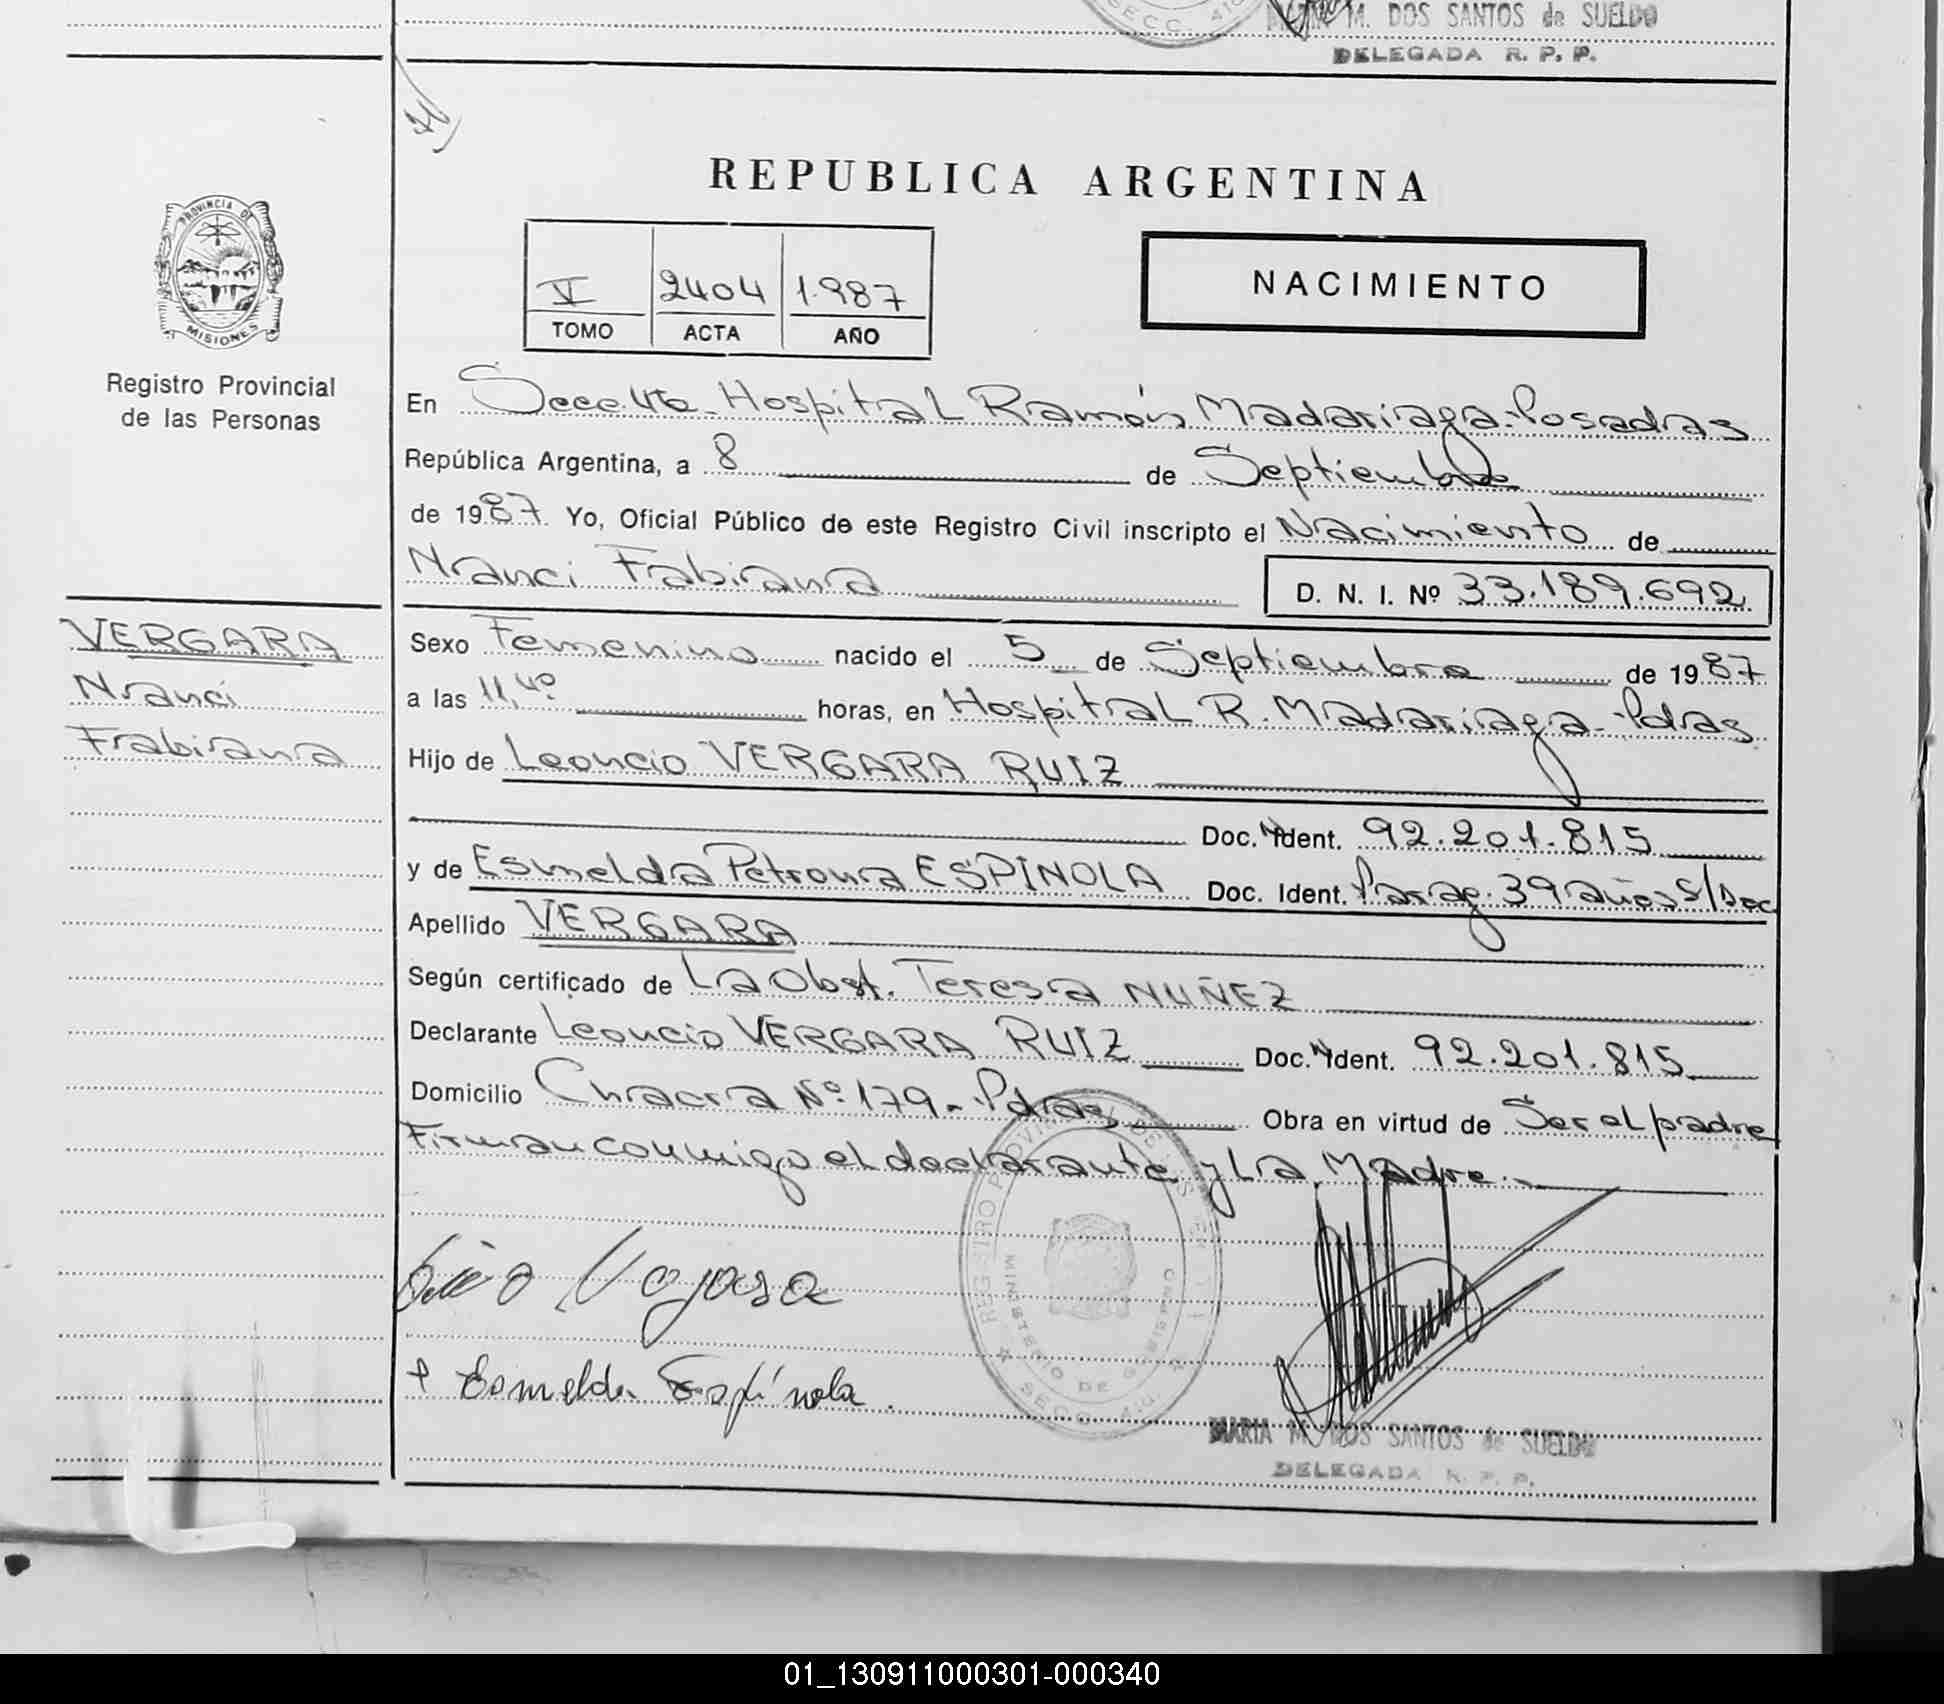 MARIA M. DOS SANTOS de SUELDO
DELEGADA R. P. P.
REPUBLICA ARGENTINA
PROVINCIA DE
MISIONES
Registro Provincial
de las Personas
V 2404 1.987
TOMO ACTA AÑO
NACIMIENTO
En Secc. 4ta. Hospital Ramón Madariaga-Posadas
República Argentina, a 8 de Septiembre
de 1987. Yo, Oficial Público de este Registro Civil inscripto el Nacimiento de
Nanci Fabiana D. N. I. Nº 33.189.692
VERGARA
Nanci
Fabiana
Sexo Femenino nacido el 5 de Septiembre de 1987
a las 11,40 horas, en Hospital R. Madariaga-Pdas
Hijo de Leoncio VERGARA RUIZ
Doc. Ident. 92.201.815
y de Esmelda Petrona ESPINOLA Doc. Ident. Parag. 39 años S/Doc
Apellido VERGARA
Según certificado de La Obst. Teresa NUÑEZ
Declarante Leoncio VERGARA RUIZ Doc. Ident. 92.201.815
Domicilio Chacra Nº 179- Pdas Obra en virtud de Ser el padre
Firman conmigo el declarante y La Madre.
Esmelda Espínola
REGISTRO PROVINCIAL DE LAS
MINISTERIO DE
SECC.
MARIA M. DOS SANTOS de SUELDO
DELEGADA R. P. P.
01_130911000301-000340